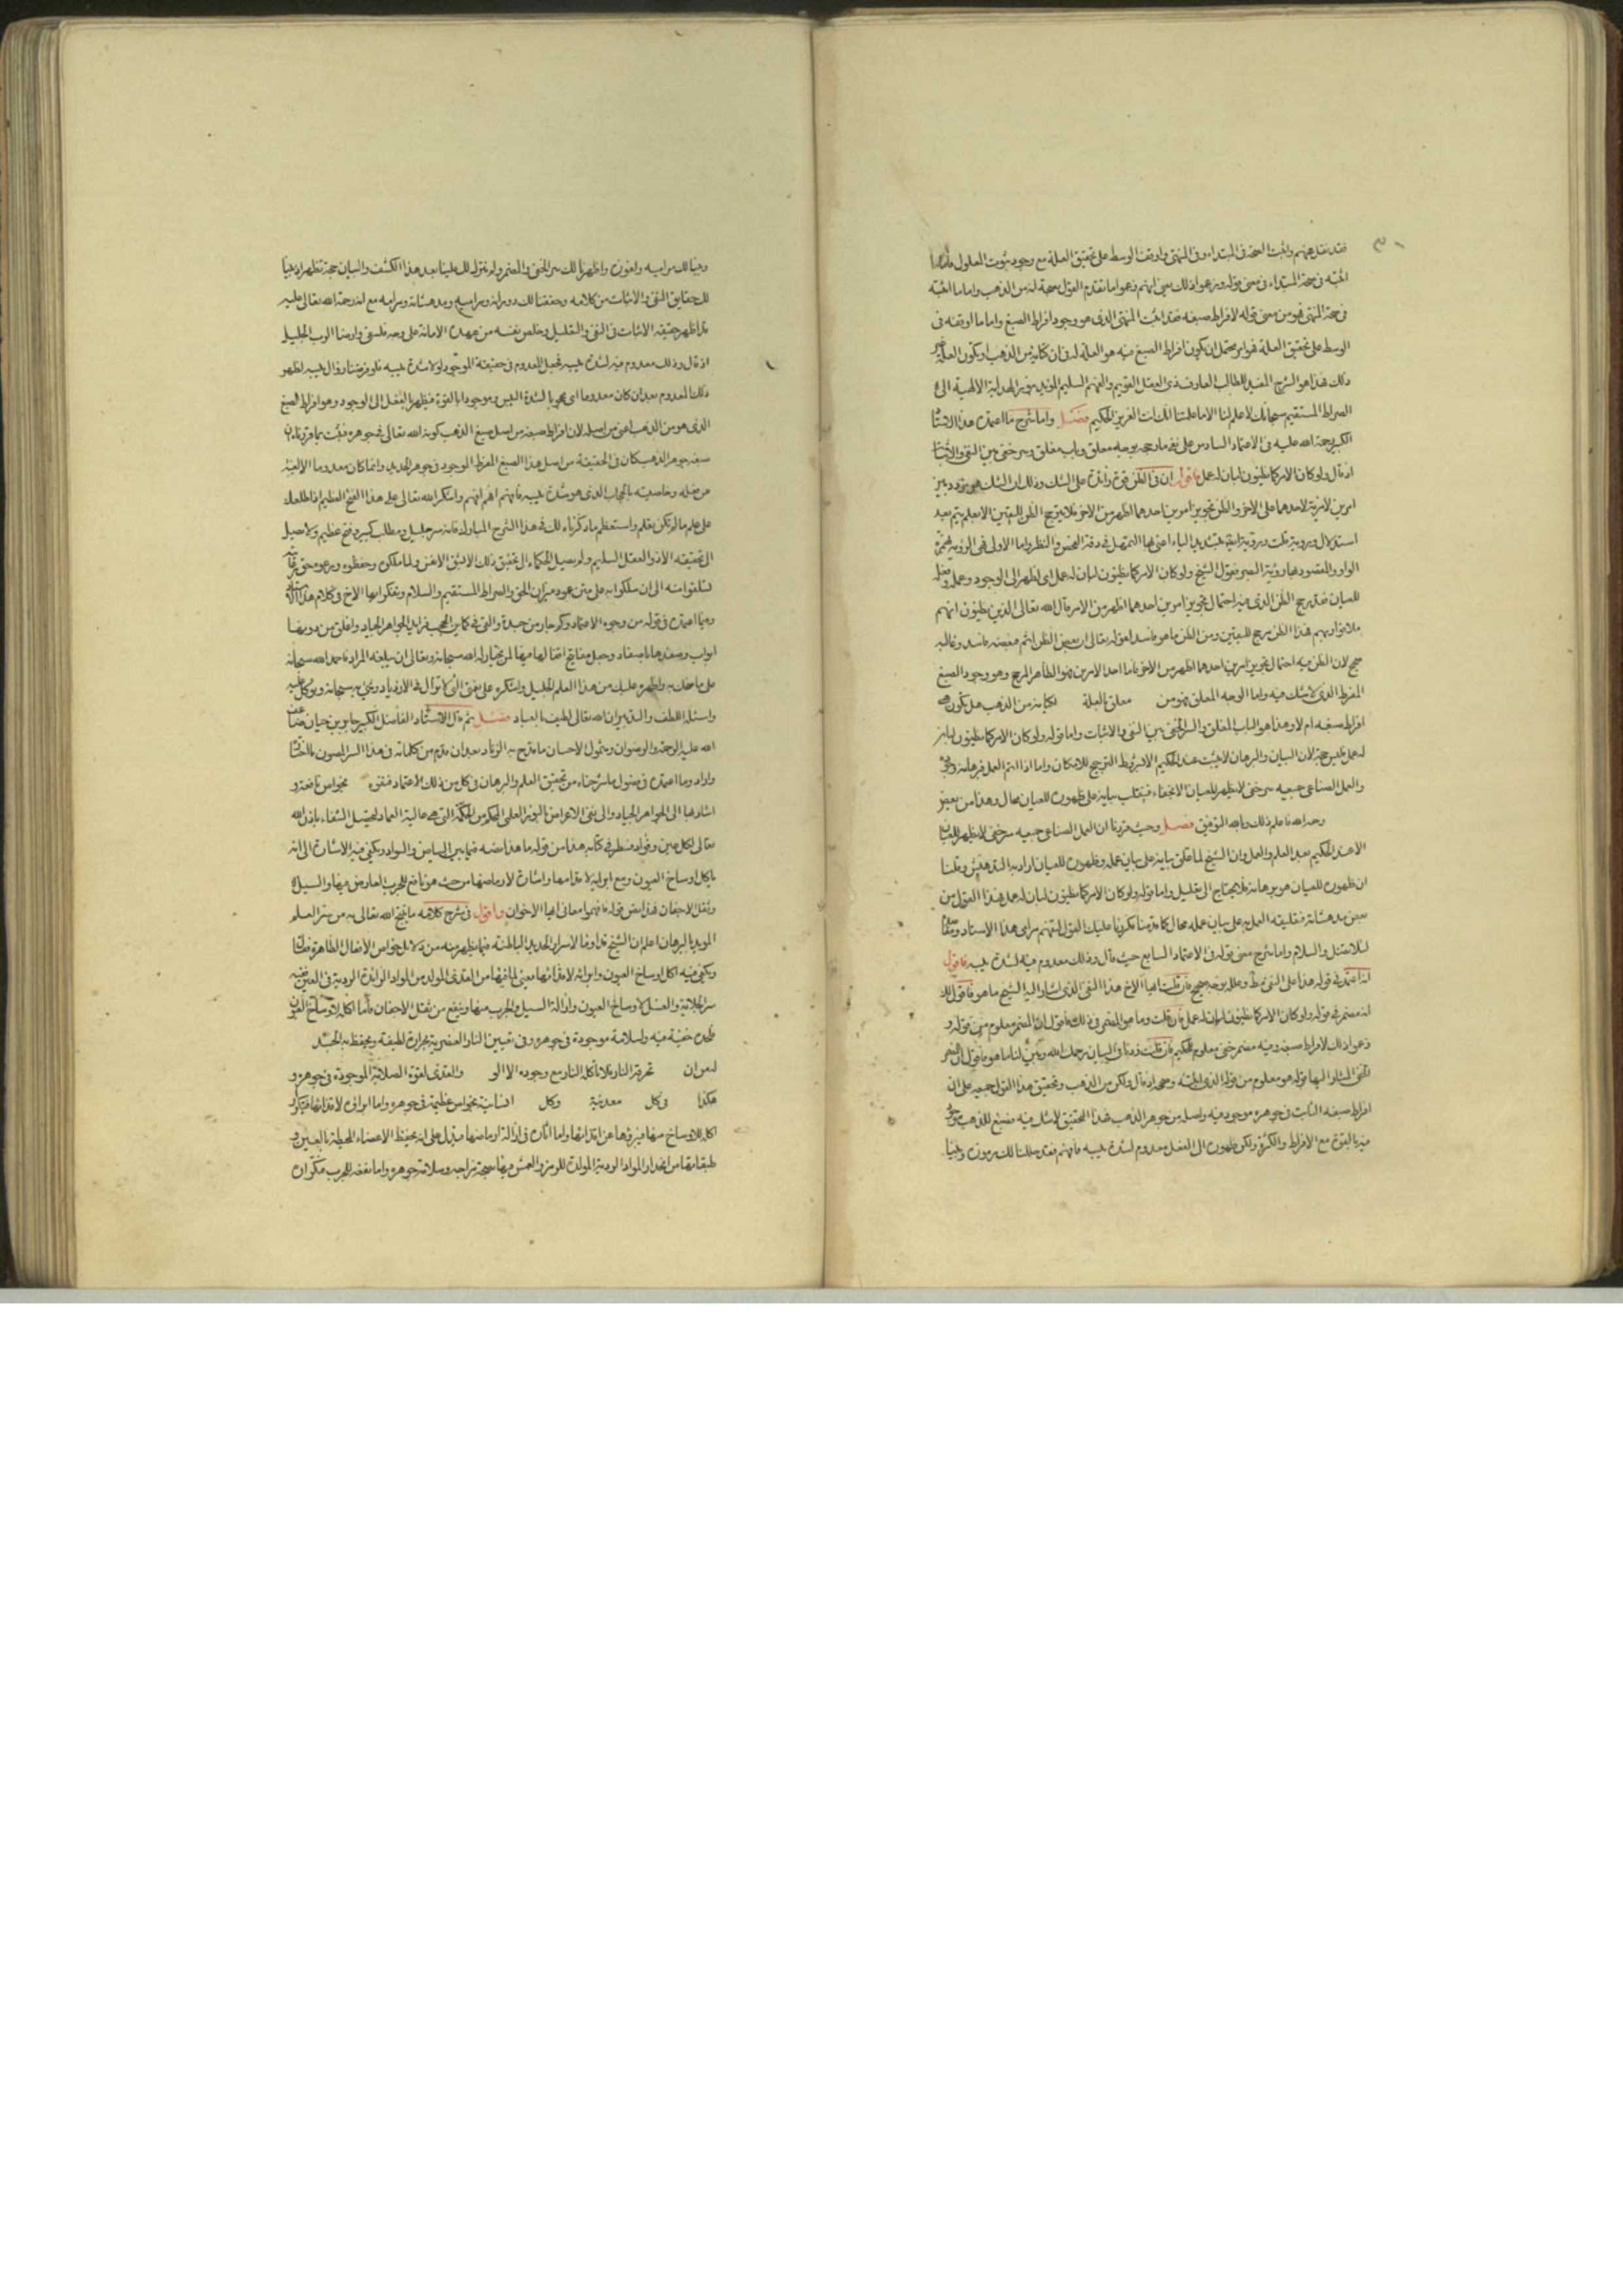 فقد نقل عنهم واثبت الصحة فى المبتداء وفى المنتهى واوقف الوسط على تحقيق العلة مع وجود ثبوت المعلول
اثبته فى صحة المبتداء فى معنى قوله وزعموا ذلك يعنى انهم زعموا ما تقدم القول بصحة لنه من الذهب واما ما اثبته
فى صحة المنتهى فهو من معنى قوله لافراط صبغه فقد اثبت المنتهى الذى هو وجود افراط الصبغ واما ما اوقفه فى
الوسط على تحقيق العلة فهو انه يحتمل ان يكون افراط الصبغ فيه هو العلة له فى ان كيانه من الذهب او يكون العلة
ذلك فهذا هو الشرح المفيد للطالب العارف ذى العقل القويم والفهم السليم المؤيد بنور الهداية الالهية الى
الصراط المستقيم سبحانك لا علم لنا الا ما علمتنا انك انت العزيز الحكيم فصل واما شرح ما اعتمده هذا الاستاذ
الكبير رحمة الله عليه فى الاعتماد السادس على نفى ما رجحه بوجه معلق وباب مغلق وسر خفى بين النفى والاثبات
اذ قال ولو كان الامر كما يظنون لبان له عمل فاقول ان فى الظن قوة زائدة على الشك وذلك ان الشك هو تردد بين
امرين لا مزية لاحدهما على الاخر والظن تجويز امرين احدهما اظهر من الاخر فلا يترجح الظن لليقين الا بعلم يتم بعد
استدلال وروية قلت وروية اعنى بتشديد الياء اعنى بها التمهل فى دقة الفحص والنظر واما الاولى فهى الرؤية بهمزة
الواو والمقصود بها روية البصر فقول الشيخ ولو كان الامر كما يظنون لبان له عمل اى لظهر الى الوجود وعمل
للعيان فقد يرجح الظن الذى فيه احتمال تجويز امرين احدهما اظهر من الامر قال الله تعالى الذين يظنون انهم
ملاقوا ربهم فهذا الظن مرجح لليقين ومن الظن ما هو فاسد لقوله تعالى ان بعض الظن اثم فبعضه فاسد وغالبه
صحيح لان الظن فيه احتمال تجويز امرين احدهما اظهر من الاخر فاما احد الامرين فهو الظاهر المرجح وهو وجود الصبغ
المفرط الذى لا شك فيه واما الوجه المعلق فهو من معلق بالعلة لكيانه من الذهب هل يكون
افراط صبغه ام لا وهذا هو الباب المغلق والسر الخفى بين النفى والاثبات واما قوله ولو كان الامر كما يظنون لبان
له عمل فليس حجة لان البيان والبرهان لا يثبت عند الحكيم الا بشرط الترجيح للامكان واما اذا اتم العمل فبرهانه
والعمل الصناعى جميعه سر خفى لا يظهر للعيان الا بخفاء فيقلب بيانه على ظهوره للعيان محال وهذا من بعض
وحد الله فاعلم ذلك وبالله التوفيق فصل وحيث قررنا ان العمل الصناعى جميعه سر خفى لا يظهر للعيان
الا عند الحكيم بعد العلم والعمل وان الشيخ لما علق بيانه على بيان عمله وظهوره للعيان اراد به التدهيش وقلنا
ان ظهوره للعيان هو برهانه فلا يحتاج الى تعليل واما قوله ولو كان الامر كما يظنون لبان له عمل هذا القول من
بعض مدهشاته فتعليقه العلم به على بيان عمله محال كما قدمنا فكررنا عليك القول لتفهم مرامى هذا الاستاذ
لئلا تضل والسلام واما شرح معنى قوله فى الاعتماد السابع حيث قال وذلك معدوم فيه لشدة يبسه فاقول
انه اعتمد فى قوله هذا على النفى وعلله بوجه صحيح فان قلت ايها الاخ هذا النفى الذى اشار اليه الشيخ ما هو فاقول لك
انه مضمر فى قوله ولو كان الامر كما يظنون لبان له عمل فان قلت وما هو المضمر فى ذلك فاقول ان المضمر معلوم من قوله و
زعموا ذلك لافراط صبغه وفيه مضمر خفى معلوم للحكيم فان قلت زدنا فى البيان رحمك الله وبين لنا ما هو فاقول ان
النفى المشار اليها قوله هو معلوم من قوله الذى اثبته وصححه اذ قال ولكن من الذهب وتحقيق هذا القول جميعه على ان
افراط صبغه الثابت فى جوهره موجود فيه واصله من جوهر الذهب فهذا التحقيق لا شك فيه فصبغ للذهب
فيه بالقوة مع الافراط والكثرة ولكن ظهوره الى الفعل معدوم لشدة يبسه فافهم فقد حللنا لك رموزه وبينا
وبينا لك مراميه والغوزه واظهرنا لك سر الخفى والمضمر ولم نترك لك علينا بعد هذا الكشف والبيان حجة تظهر اذ بينا
لك حقايق النفى والاثبات من كلامه وحققنا لك دورانه ومراميه ومدهشاته ومرامه مع انه رحمة الله تعالى عليه
قد اظهر حقيقة الاثبات فى النفى والتعليل وخلص نفسه من عهدة الامانة على وجه فلسفى وارضا الرب الجليل
اذ قال وذلك معدوم فيه لشدة يبسه فجعل المعدوم فى حقيقة الموجود لولا شدة يبسه فلو فرضنا زوال يبسه لظهر
ذلك المعدوم بعد ان كان معدوما اى مخفيا لشدة اليبس وموجودا بالقوة فيظهر بالفعل الى الوجود وهو افراط الصبغ
الذى هو من الذهب اعنى من اصله لان افراط صبغه من اصل صبغ الذهب كونه الله تعالى فى جوهره فثبت بما قررناه ان
صبغ جوهر الذهب كان فى الحقيقة من اصل هذا الصبغ المفرط الموجود فى جوهر الحديد وانما كان معدوما الا لغيبته
عن فعله وخاصيته بالحجاب الذى هو شدة يبسه فافهم افهم افهم واشكر الله تعالى على هذا الفتح العظيم اذ اطلعك
على علم ما لم تكن تعلم واستعظم ما ذكرناه لك فى هذا الشرح المبارك فانه سر جليل ومطلب كبير وفتح عظيم ولا تصل
الى تحقيقه الا ذو العقل السليم ولم يصل الحكماء الى تحقيق ذلك الا بشق الانفس ولما ملكوه وحفظوه ورعوه حق
فبلغوا منه الى ان سلكوا به على متن عود ميزان الحق والصراط المستقيم والسلام وتفكر ايها الاخ فى كلام هذا
وفيما اعتمده فى قوله من وجوه الاعتماد وكرر جابر من حيده والقى فى مكامن الحجب فرايد الجواهر الجياد واغلق من دونها
ابواب وصفدها باصفاد وجعل مفاتيح اقفالها فيها لمن يختار له الله سبحانه وتعالى ان يبلغه المراد فاحمد الله سبحانه
على ما منحك به واظهره عليك من هذا العلم الجليل واشكره على نعمه التى لا تزال فى الازدياد وثق به سبحانه وتوكل عليه
واسئله اللطف والتدبير ان الله تعالى لطيف بالعباد فصل ثم قال الاستاذ الفاضل الكبير جابر بن حيان
الله عليه الرحمة والرضوان وشمول الاحسان ما قدح به الزناد بعد ان قدم من كلماته فى هذا السر المصون
واراد وما اعتمده فى فصول ما شرحناه من تحقيق العلم والبرهان فى كل من ذلك الاعتماد فقوه بخواص نافعة و
اشار بها الى الجواهر الجياد والى نفى الاعراض الى العلم المحكم من الحكمة التى هى عالية العماد لتحصيل الشفاء باذن الله
تعالى لكل عين وفؤاد فسطر فى كتابه هذا من قوله ما هذا نصه فيما بين البياض والسواد ويكفى فيه الاشارة الى انه
ياكل اوساخ العيون ومع ابرايه لاقذائها واشارة لارماصها من حيث هو نافع للجرب العارض فيها والسيلان
وثقل الاجفان فهذا نص قوله فافهموا معانى ايها الاخوان واقول فى شرح كلامه ما يفتح الله تعالى به من سر العلم
المؤيد بالبرهان اعلم ان الشيخ قد اوفا الاسرار الحديد الباطنة فيما يظهر منه من دلايل خواص الافعال الظاهرة
ويكفى فيه اكل اوساخ العيون وابرائه لاقذائها يعنى لما فيها من القذى المتولد من المواد الزائدة الردية فى العين
سر الجلاية والغسل لاوساخ العيون وازالة السيل والجرب منها وينفع من ثقل الاجفان فاما اكله لاوساخ العين
فحده خفية فيه واسلامة موجودة فى جوهره وفى تعيين النار العنصرية بحرارة لطيفة ويحفظ به الجسد
ليس ان تحرقه النار فلا تاكله النار مع وجوده الا الو والقذى لقوة الصلابة الموجودة فى جوهره و
هكذا فى كل معدنية وكل انسانية بخواص عظيمة فى جوهره واما ابراؤه لاقذائها فيكرر
اكله للاوساخ منها فيبرؤها عن اقذائها واما اثاره فى ازالة ارماصها فيدل على انه يحفظ الاعضاء المحيطة بالعين و
طبقاتها من انحدار المواد الردية المولدة للرمز والعمش فيها بصحة مزاجه وصلابة جوهره واما نفعه للجرب فتكرار ان